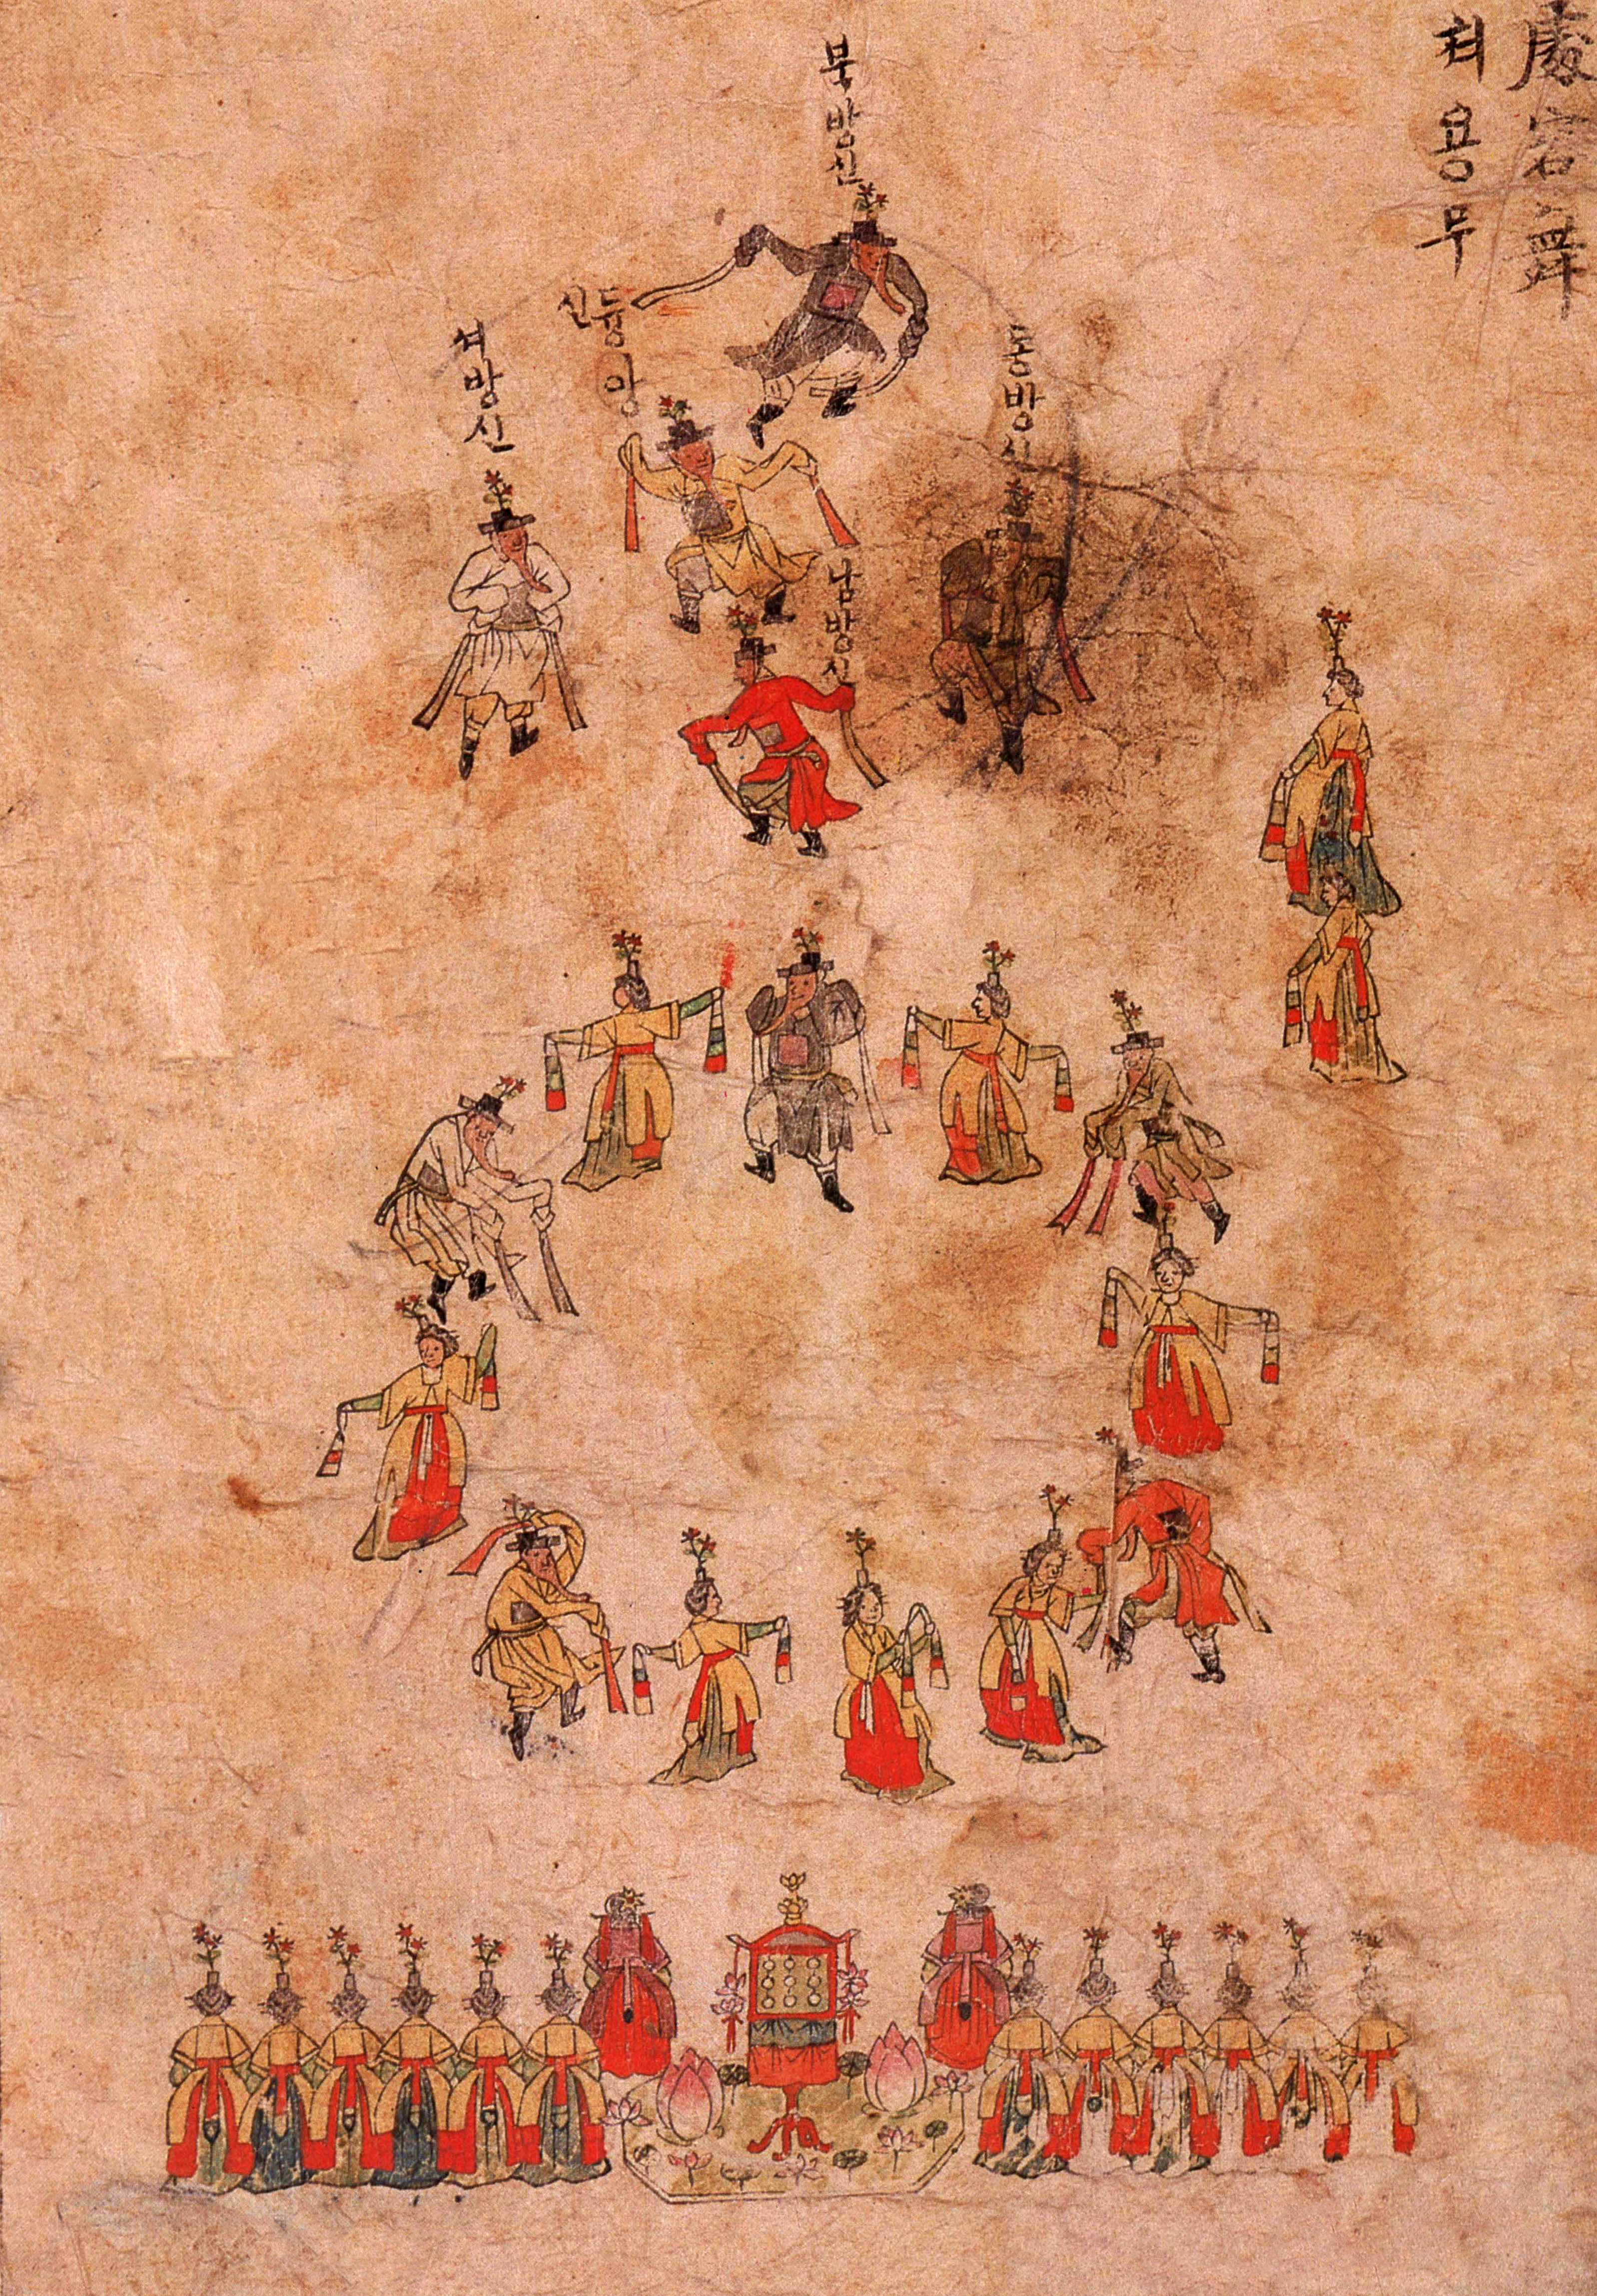 處容舞
쳐용무
북방신
동방신
듕앙
신
셔방신
남방신